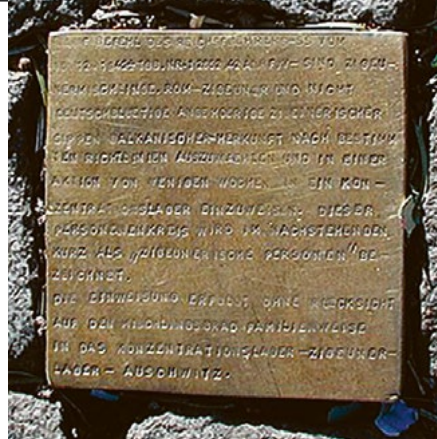 BEFEHL DES REICHSFÜHRERS-SS VOM
16.12.42 SIND ZIGEU-
NERMISCHLINGE, ROM-ZIGEUNER UND NICHT
DEUTSCHBLÜTIGE ANGEHÖRIGE ZIGEUNERISCHER
SIPPEN BALKANISCHER HERKUNFT NACH BESTIMM
TEN RICHTLINIEN AUSZUWÄHLEN UND IN EINER
AKTION VON WENIGEN WOCHEN IN EIN KON-
ZENTRATIONSLAGER EINZUWEISEN. DIESER
PERSONENKREIS WIRD IM NACHSTEHENDEN
KURZ ALS „ZIGEUNERISCHE PERSONEN" BE-
ZEICHNET.
DIE EINWEISUNG ERFOLGT OHNE RÜCKSICHT
AUF DEN MISCHLINGSGRAD FAMILIENWEISE
IN DAS KONZENTRATIONSLAGER-ZIGEUNER-
LAGER- AUSCHWITZ.